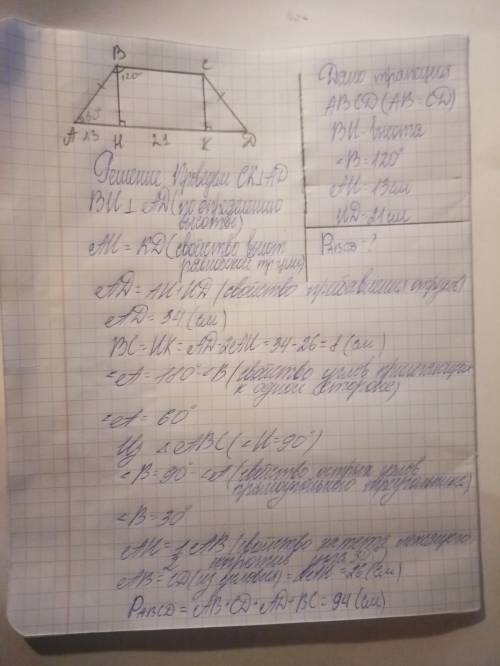 B
C
120°
60°
A 13 H 21 K D
Дано трапеция
ABCD (AB=CD)
BH-высота
∠B=120°
AH=13см
HD=21см
PABCD-?
Решение: Проведём CK⊥AD
BH⊥AD (по определению
высоты)
AH=KD (свойство высот
равнобокой трапции)
AD=AH+HD (свойство прибавления отрезков)
AD=34(см)
BC=HK=AD-2AH=34-26=8(см)
∠A=180°-∠B (свойство углов прилежащих
к одной стороне)
∠A=60°
Из △ABC (∠H=90°)
∠B=90°-∠A (свойство острых углов
прямоугольного треугольника)
∠B=30°
AH=1/2 AB (свойство катета, лежащего
против угла 30°)
AB=CD (из условия)=2AH=26(см)
PABCD=AB+CD+AD+BC=94(см)